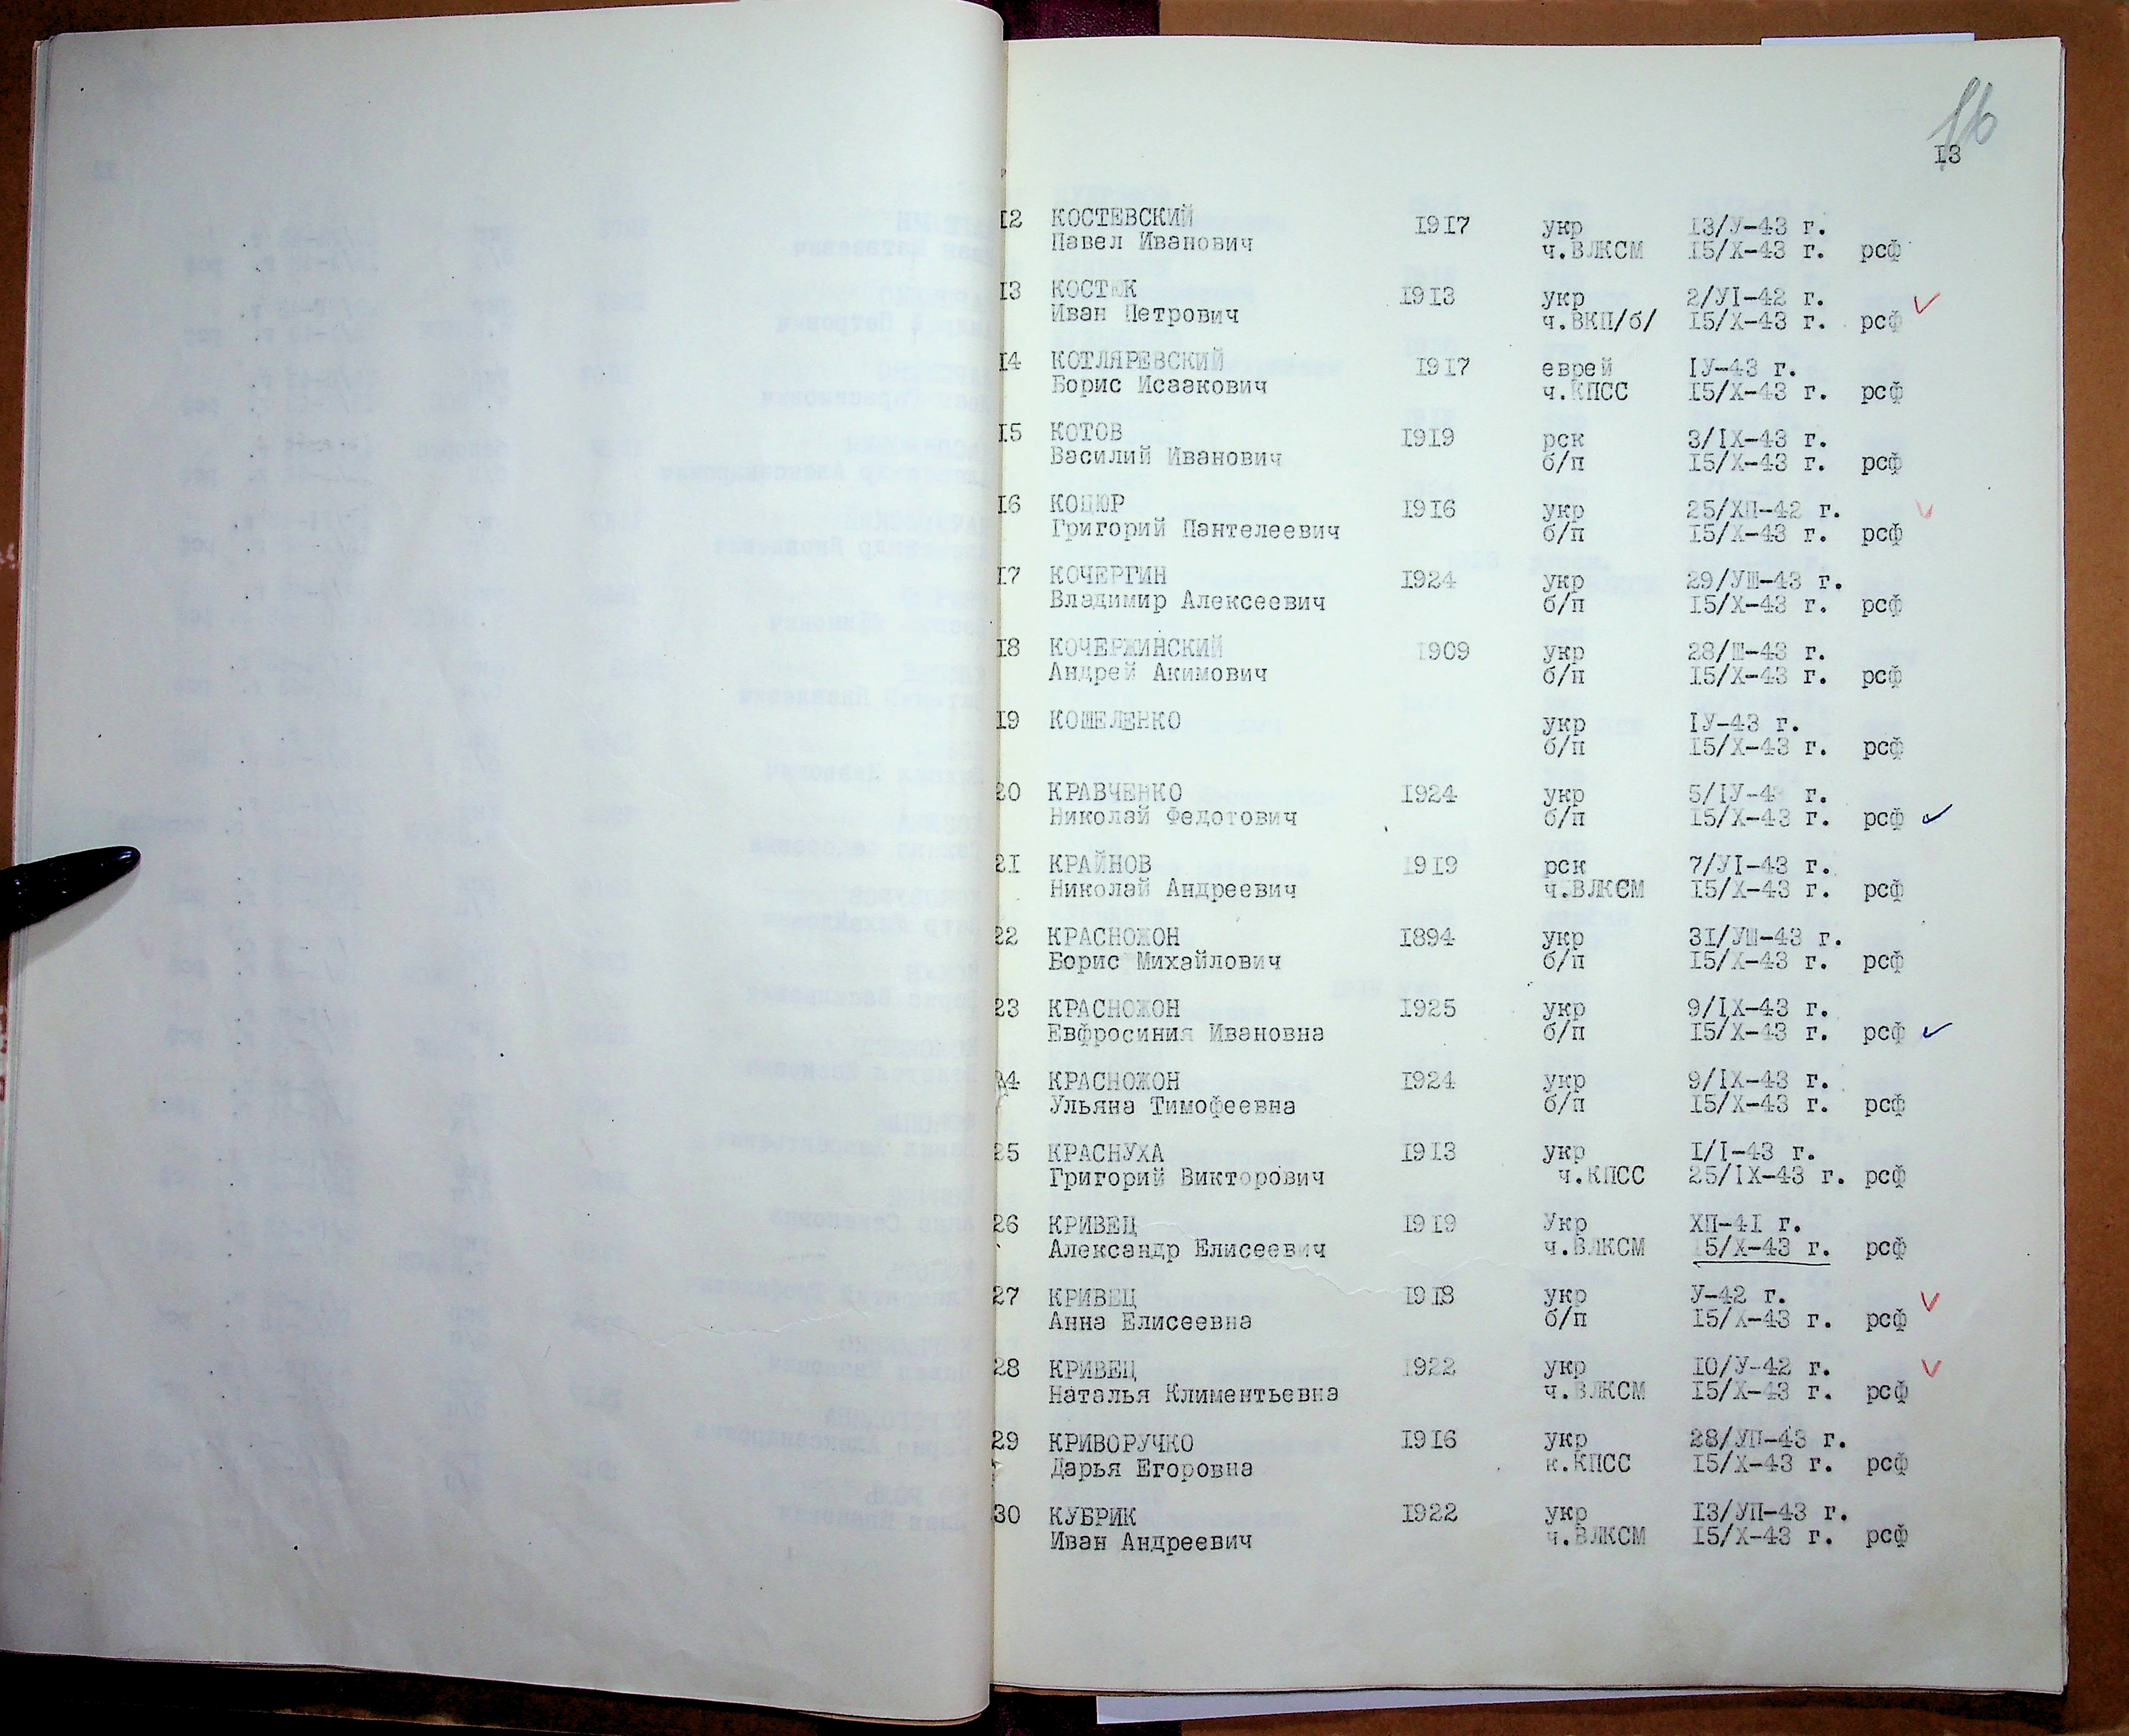 16
I3
I2 КОСТЕВСКИЙ 1917 укр 13/У-43 г.
Павел Иванович ч.ВЛКСМ 15/Х-43 г. рсф
I3 КОСТЮК 1913 укр 2/УI-42 г.
Иван Петрович ч.ВКП/б/ 15/Х-43 г. рсф
I4 КОТЛЯРЕВСКИЙ 1917 еврей IУ-43 г.
Борис Исаакович ч.КПСС 15/Х-43 г. рсф
I5 КОТОВ 1919 рск 3/IХ-43 г.
Василий Иванович б/п 15/Х-43 г. рсф
I6 КОЦЮР 1916 укр 25/ХП-42 г.
Григорий Пантелеевич б/п 15/Х-43 г. рсф
I7 КОЧЕРГИН 1924 укр 29/УШ-43 г.
Владимир Алексеевич б/п 15/Х-43 г. рсф
I8 КОЧЕРЖИНСКИЙ 1909 укр 28/Ш-43 г.
Андрей Акимович б/н 15/Х-43 г. рсф
I9 КОШЕЛЕНКО укр IУ-43 г.
б/п 15/Х-43 г. рсф
20 КРАВЧЕНКО 1924 укр 5/IУ-4 г.
Николай Федотович б/п 15/Х-43 г. рсф
2I КРАЙНОВ 1919 рск 7/УI-43 г.
Николай Андреевич ч.ВЛКСМ 15/Х-43 г. рсф
22 КРАСНОЖОН 1894 укр 3I/УШ-43 г.
Борис Михайлович б/п 15/Х-43 г. рсф
23 КРАСНОЖОН 1925 укр 9/IХ-43 г.
Евфросиния Ивановна б/п 15/Х-43 г. рсф
24 КРАСНОЖОН 1924 укр 9/IХ-43 г.
Ульяна Тимофеевна б/п 15/Х-43 г. рсф
25 КРАСНУХА 1913 укр I/I-43 г.
Григорий Викторович ч.КПСС 25/IХ-43 г. рсф
26 КРИВЕЦ 1919 Укр ХП-4I г.
Александр Елисеевич ч.ВЛКСМ 15/Х-43 г. рсф
27 КРИВЕЦ 1918 укр У-42 г.
Анна Елисеевна б/п 15/Х-43 г. рсф
28 КРИВЕЦ 1922 укр 10/У-42 г.
Наталья Климентьевна ч.ВЛКСМ 15/Х-43 г. рсф
29 КРИВОРУЧКО 1916 укр 28/УП-43 г.
Дарья Егоровна к.КПСС 15/Х-43 г. рсф
30 КУБРИК 1922 укр 13/УП-43 г.
Иван Андреевич ч.ВЛКСМ 15/Х-43 г. рсф